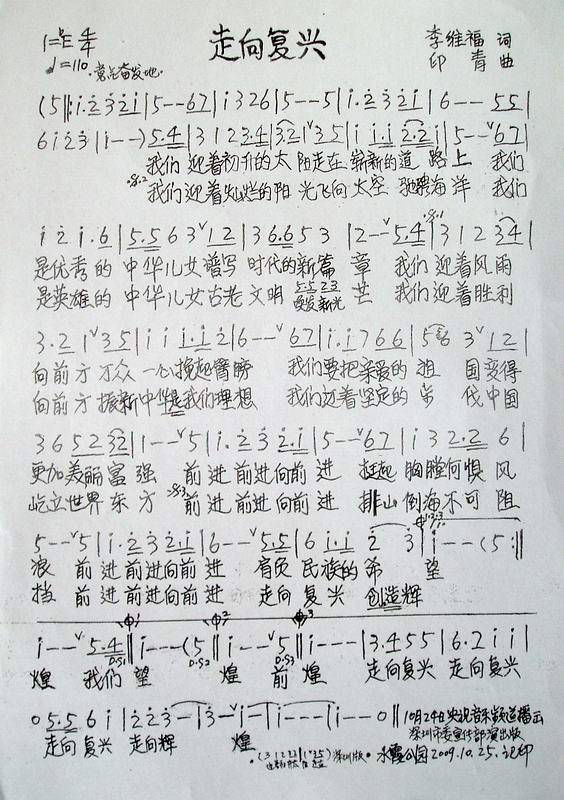 1=♭E 4/4
走向复兴
李维福 词
♩=110
印青 曲
(5‖: i·2 3 2i | 5--67 | i 3 2 6 | 5--5 | i·2 3 2i | 6-- 55 |
6 i 2 3 | i--) 5·4 | 3 1 2 3·4 | 3 2 1 ∨ 3 5 | i i·i 2·2 i | 5--∨67 |
我们 迎着初升的太 阳走在 崭新的道 路上 我们
我们 迎着灿烂的阳 光飞向 太空 驰骋海 洋 我们
i 2 i·6 | 5·5 6 3 ∨ 1 2 | 3 6·6 5 3 | 2--∨5·4 | 3 1 2 3 4 |
是优秀的 中华儿女谱写 时代的新篇 章 我们 迎着风雨
是英雄的 中华儿女古老 文明 焕发新光 芒 我们 迎着胜利
3·2 1 ∨ 3 5 | i i i·i 2 | 6--∨67 | i·i 7 6 6 | 5 6 3 ∨ 1 2 |
向前方 万众 一心挽起臂膀 我们要把亲爱的 祖 国变得
向前方 振新中华是我们理想 我们迈着坚定的 步 伐中国
3 6 5 2 3 2 | 1--∨5 | i·2 3 2·i | 5--∨67 | i 3 2·2 6 |
更加美丽富 强 前 进 前进向前 进 挺起 胸膛何惧 风
屹立世界东 方 前 进 前进向前 进 排山 倒海不可 阻
5--∨5 | i·2 3 2·i | 6--∨5·5 | 6 i·i 2 3 | i--(5 :‖
浪 前 进 前进向前 进 肩负 民族的 希 望
挡 前 进 前进向前 进 走向 复 兴 创造辉
i--∨5·4 ‖ i--(5 ‖ i--∨5 ‖ i--- | 3·4 5 5 | 6·2 i i |
煌 我们 望 煌 前 煌 走向复兴 走向复兴
0 5·5 6 i | 2 2 3 - | 3-∨i- | i--- | i--0 ‖
10月24日央视音乐频道播出
深圳市委宣传部演出版
走向 复兴 走向辉 煌
深圳版
水霞公园2009.10.25.记印